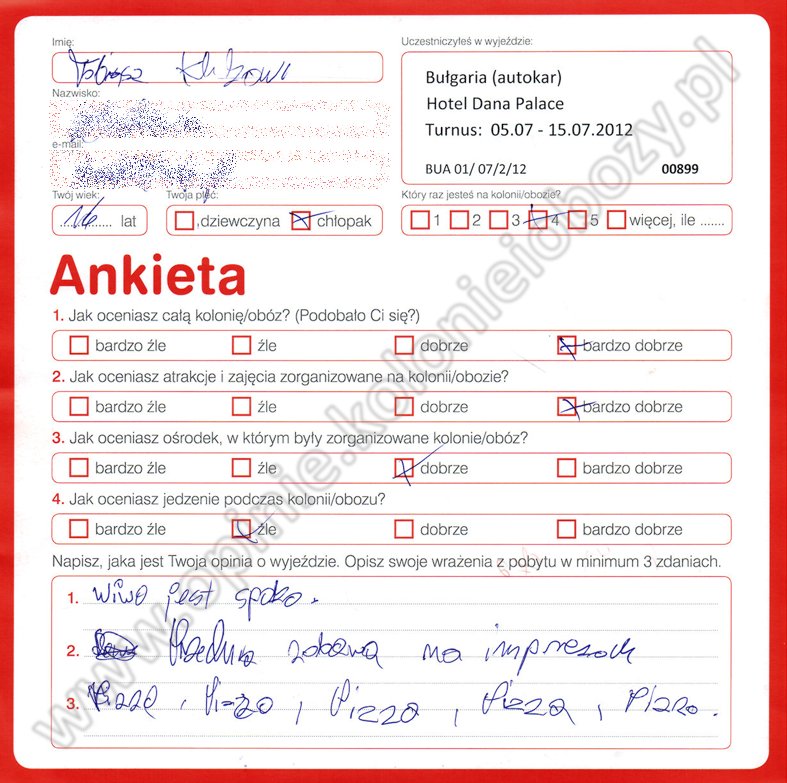 Imię:
Uczestniczyłeś w wyjeździe:
Bułgaria (autokar)
Hotel Dana Palace
Turnus: 05.07 - 15.07.2012
BUA 01/ 07/2/12 00899
Nazwisko:
e-mail:
Twój wiek:
16 lat
Twoja płeć:
dziewczyna chłopak
Który raz jesteś na kolonii/obozie?
1 2 3 4 5 więcej, ile .......
Ankieta
1. Jak oceniasz całą kolonię/obóz? (Podobało Ci się?)
bardzo źle źle dobrze bardzo dobrze
2. Jak oceniasz atrakcje i zajęcia zorganizowane na kolonii/obozie?
bardzo źle źle dobrze bardzo dobrze
3. Jak oceniasz ośrodek, w którym były zorganizowane kolonie/obóz?
bardzo źle źle dobrze bardzo dobrze
4. Jak oceniasz jedzenie podczas kolonii/obozu?
bardzo źle źle dobrze bardzo dobrze
Napisz, jaka jest Twoja opinia o wyjeździe. Opisz swoje wrażenia z pobytu w minimum 3 zdaniach.
1. wiwo jest spoko.
2. zabawa na imprezach
3. Pizza, Pizza, Pizza, Pizza, Pizza.
www.opinie.kolonieiobozy.pl